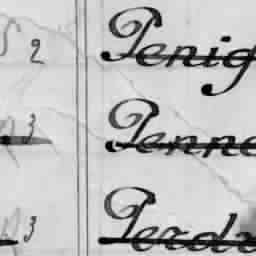 2 Penig
3 Penne
3 Perdr